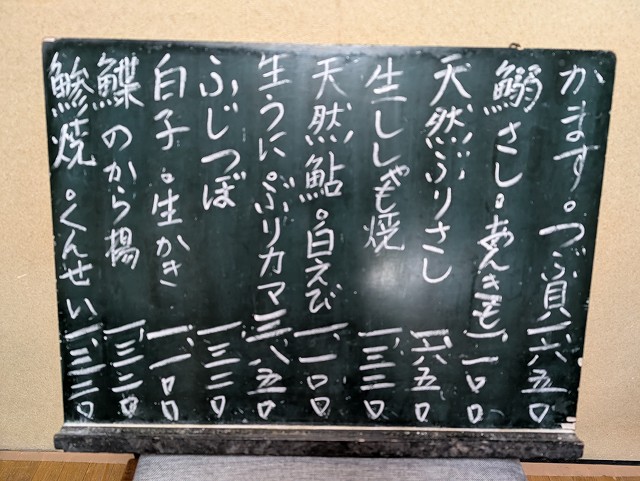 かます。つぶ貝 一、六五〇
鰯さし。あんきも 一、一〇〇
天然ぶりさし 一、六五〇
生ししゃも焼 一、三二〇
天然鮎。白えび 一、一〇〇
生うに。ぶりカマ 三、八五〇
ふじつぼ 一、三二〇
白子。生かき 一、一〇〇
鰈のから揚 一、三二〇
鯵焼。くんせい 一、三二〇